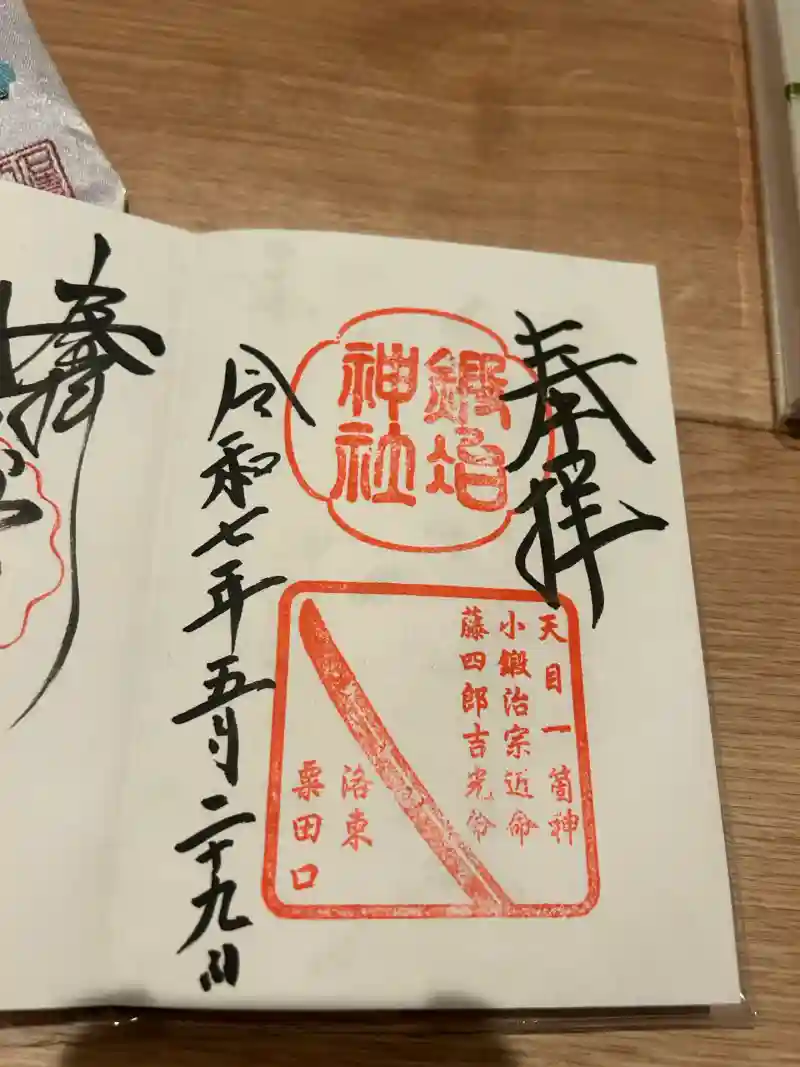 奉拝
鍛冶
神社
天目一箇神
小鍛治宗近命
藤四郎吉光命
洛東
粟田口
令和七年五月二十九日
拝